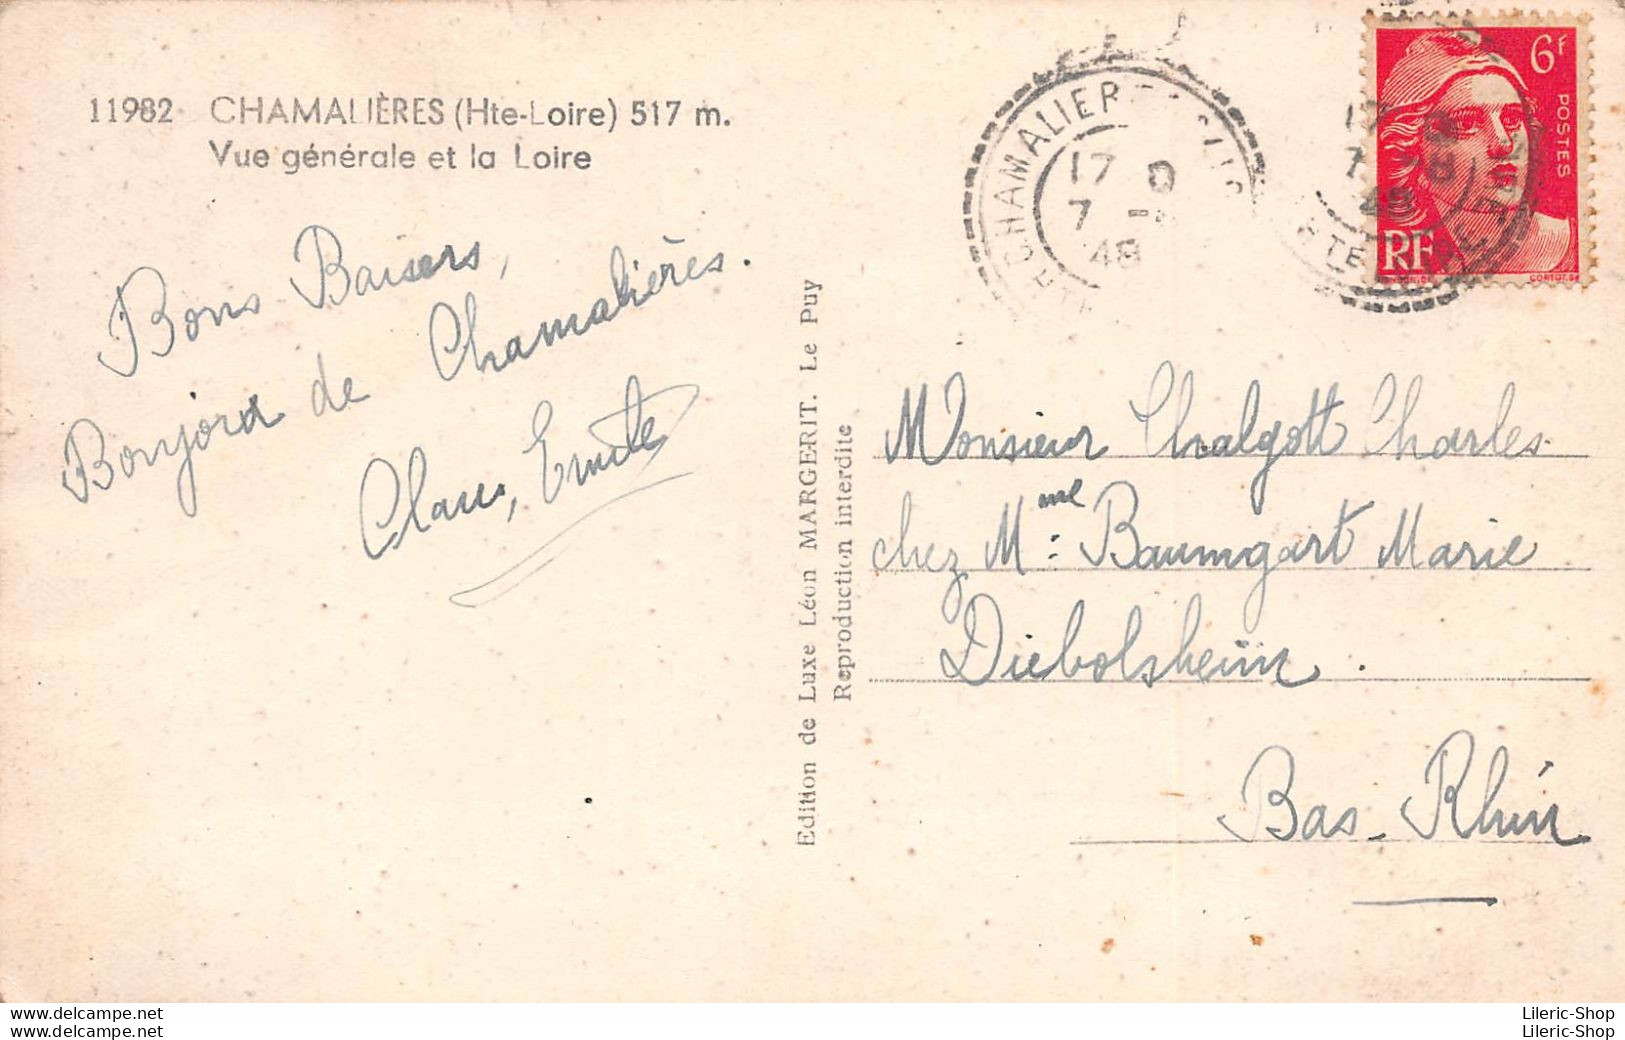 11982 CHAMALIÈRES (Hte-Loire) 517 m.
Vue générale et la Loire
Bons Baisers,
Bonjora de Chamalières.
Edition de Luxe Léon MARGERIT. Le Puy
Reproduction interdite
CHAMALIER
17
7
48
6F
POSTES
RF
17
7
48
Monsieur Chalgott Charles
chez Mme Baumgart Marie
Diebolsheim.
Bas-Rhin
Lileric-Shop
Lileric-Shop
www.delcampe.net
www.delcampe.net